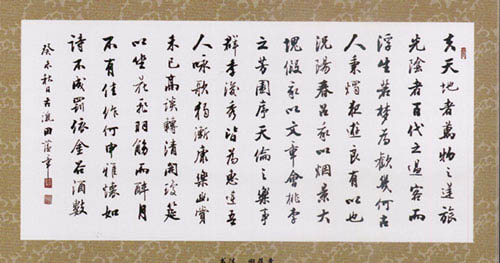 夫天地者萬物之逆旅
光陰者百代之過客而
浮生若夢為歡幾何古
人秉燭夜遊良有以也
況陽春召我以煙景大
塊假我以文章會桃李
之芳園序天倫之樂事
群季俊秀皆為惠連吾
人詠歌獨慚康樂幽賞
未已高談轉清開瓊筵
以坐花飛羽觴而醉月
不有佳作何申雅懷如
詩不成罰依金谷酒數
癸未秋日